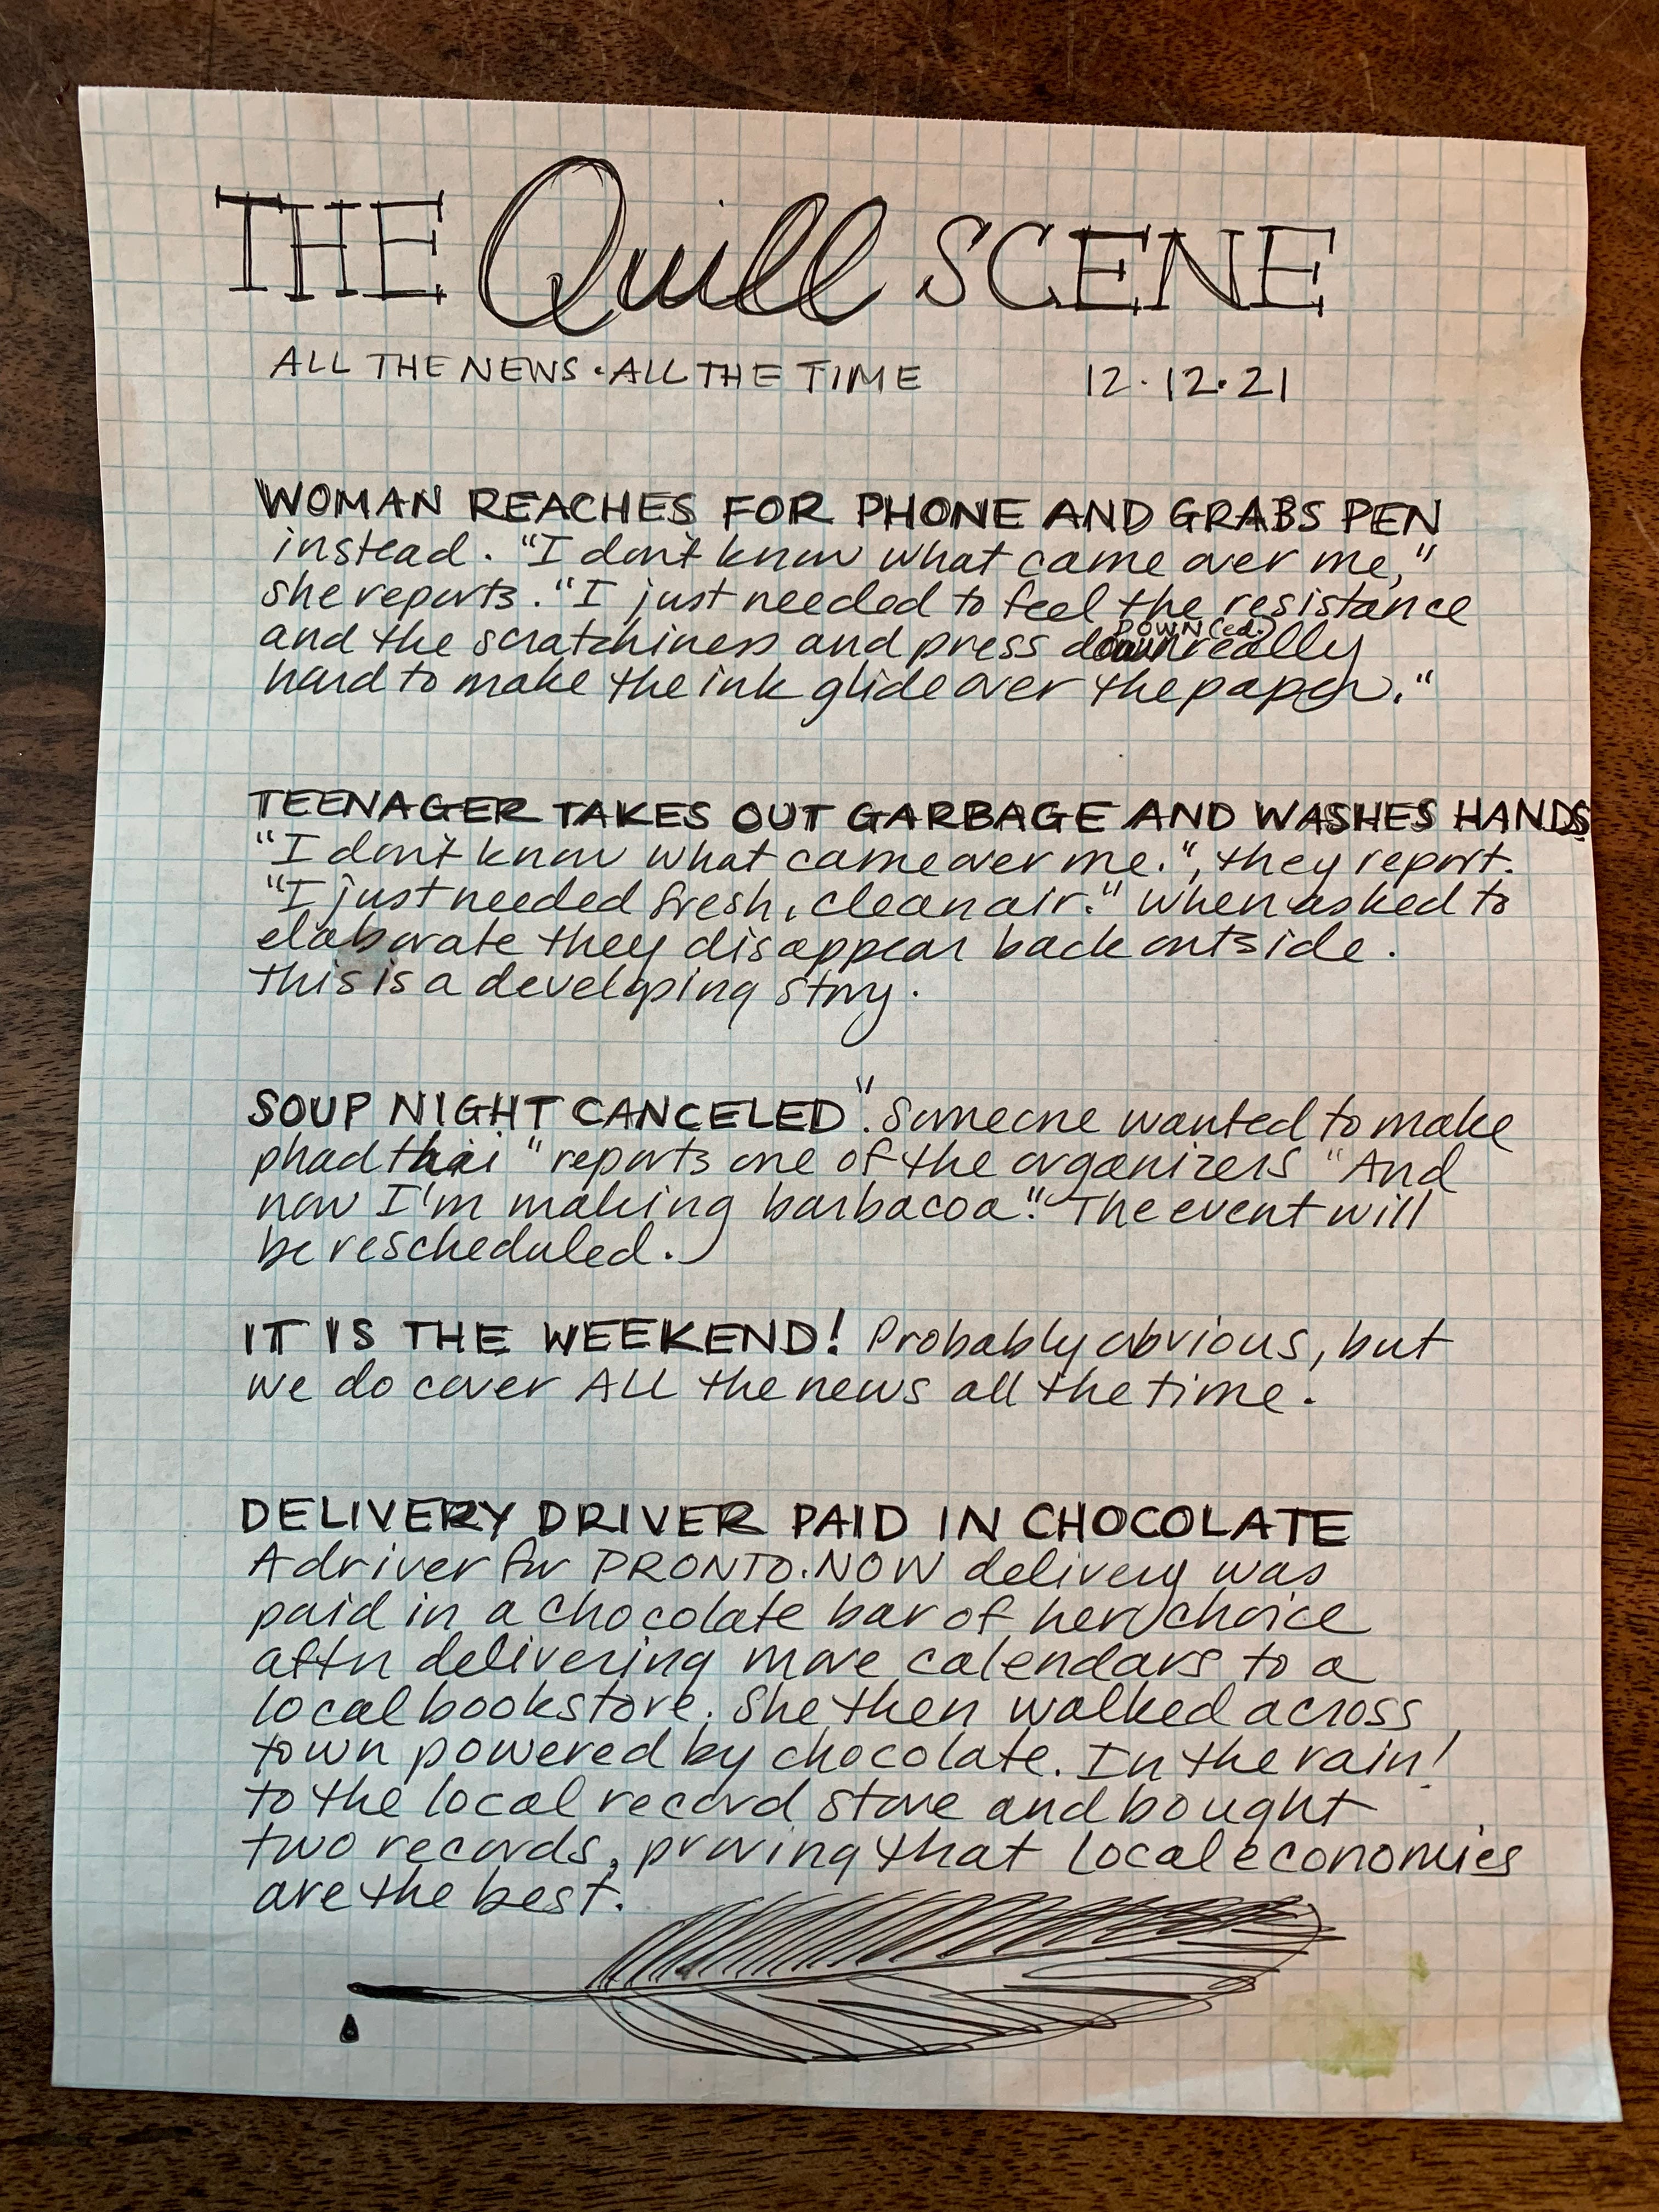 THE Quill SCENE
ALL THE NEWS · ALL THE TIME 12·12·21
WOMAN REACHES FOR PHONE AND GRABS PEN
instead. "I don't know what came over me,"
she reports. "I just needed to feel the resistance
DOWN (ed.)
and the scratchiness and press down really
hard to make the ink glide over the paper."
TEENAGER TAKES OUT GARBAGE AND WASHES HANDS
"I don't know what came over me.", they report.
"I just needed fresh, clean air." When asked to
elaborate they disappear back outside.
This is a developing story.
SOUP NIGHT CANCELED. "Someone wanted to make
phad thai" reports one of the organizers "And
now I'm making barbacoa." The event will
be rescheduled.
IT IS THE WEEKEND! Probably obvious, but
we do cover ALL the news all the time.
DELIVERY DRIVER PAID IN CHOCOLATE
A driver for PRONTO.NOW delivery was
paid in a chocolate bar of her choice
after delivering more calendars to a
local bookstore. She then walked across
town powered by chocolate. In the rain!
to the local record store and bought
two records, proving that local economies
are the best.